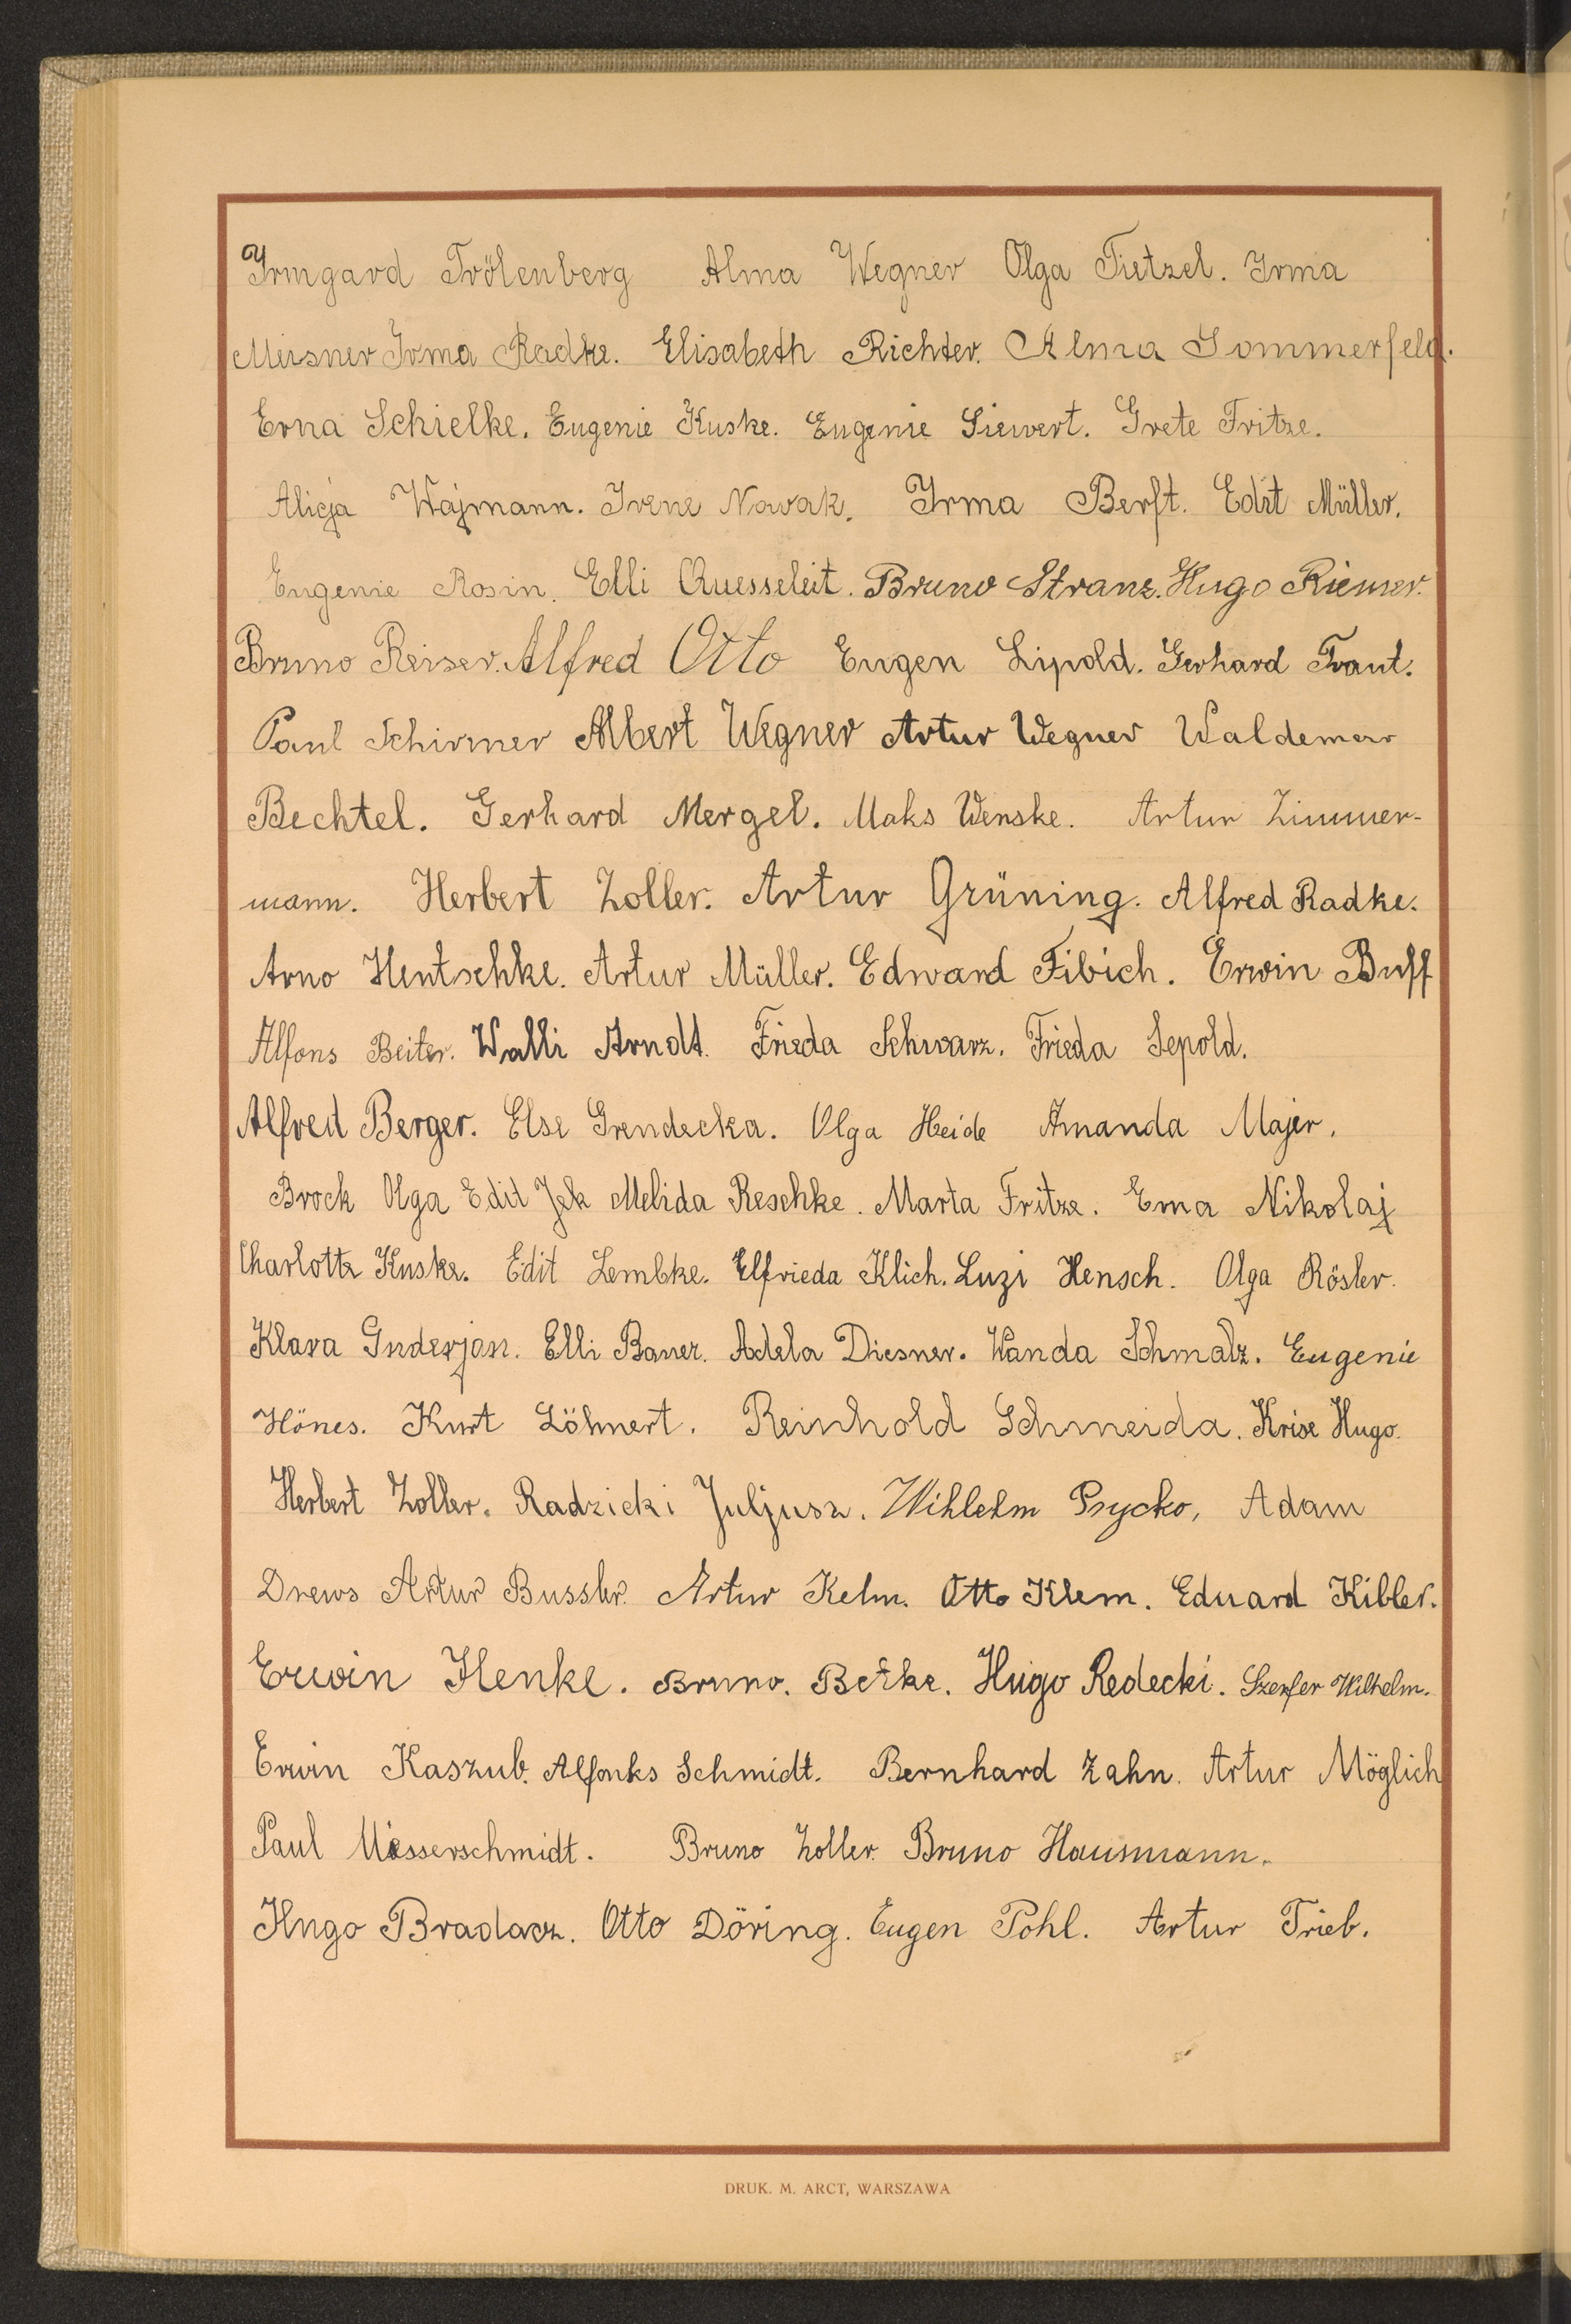 Irmgard Trölenberg Alma Wegner Olga Tietzel. Irma
Meisner Irma Radke. Elisabeth Richter. Alma Sommerfeld.
Erna Schielke. Eugenie Kuske. Eugenie Siewert. Grete Fritze.
Alicja Wajmann. Irene Nowak. Irma Berft. Edit Müller.
Eugenie Rosin. Elli Quesseleit. Bruno Stranz. Hugo Riemer.
Bruno Reiser. Alfred Otto Eugen Lipold. Gerhard Traut.
Paul Schirmer Albert Wegner Artur Wegner Waldemar
Bechtel. Gerhard Mergel. Maks Wenske. Artur Zimmer-
mann. Herbert Zoller. Artur Grüning. Alfred Radke.
Arno Hentschke. Artur Müller. Edward Fibich. Erwin Buff
Alfons Beiter. Walli Arndt. Frieda Schwarz. Frieda Lepold.
Alfred Berger. Else Grendecka. Olga Heide Amanda Majer.
Brock Olga Edit Jek Melida Reschke. Marta Fritze. Erna Nikolaj
Charlotte Kuske. Edit Lembke. Elfrieda Klich. Luzi Hensch. Olga Rösler.
Klara Guderjan. Elli Bauer. Adela Diesner. Wanda Schmalz. Eugenie
Hönes. Kurt Löhnert. Reinhold Schmeida. Krise Hugo.
Herbert Zoller. Radzicki Juljusz. Wihlehm Psycko, Adam
Drews Artur Bussler. Artur Kelm. Otto Klem. Eduard Kibler.
Erwin Henke. Bruno. Betke. Hugo Redecki. Szenfer Wilhelm.
Erwin Kaszub. Alfonks Schmidt. Bernhard Zahn. Artur Möglich
Paul Messerschmidt. Bruno Zoller. Bruno Hausmann.
Hugo Bradacz. Otto Döring. Eugen Pohl. Artur Trieb.
DRUK. M. ARCT, WARSZAWA